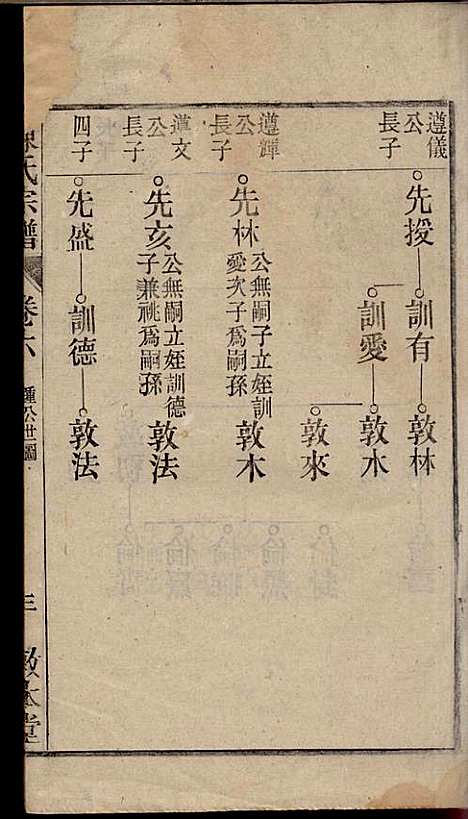 遵儀公長子
先授
訓有
敦林
訓愛
敦木
敦來
遵輝公長子
先林
公無嗣子立姪訓
愛次子爲嗣孫
敦木
遵文公長子
先亥
公無嗣立姪訓德
子兼祧爲嗣孫
敦法
四子
先盛
訓德
敦法
氏宗譜
卷六
公世圖
三
敦本堂